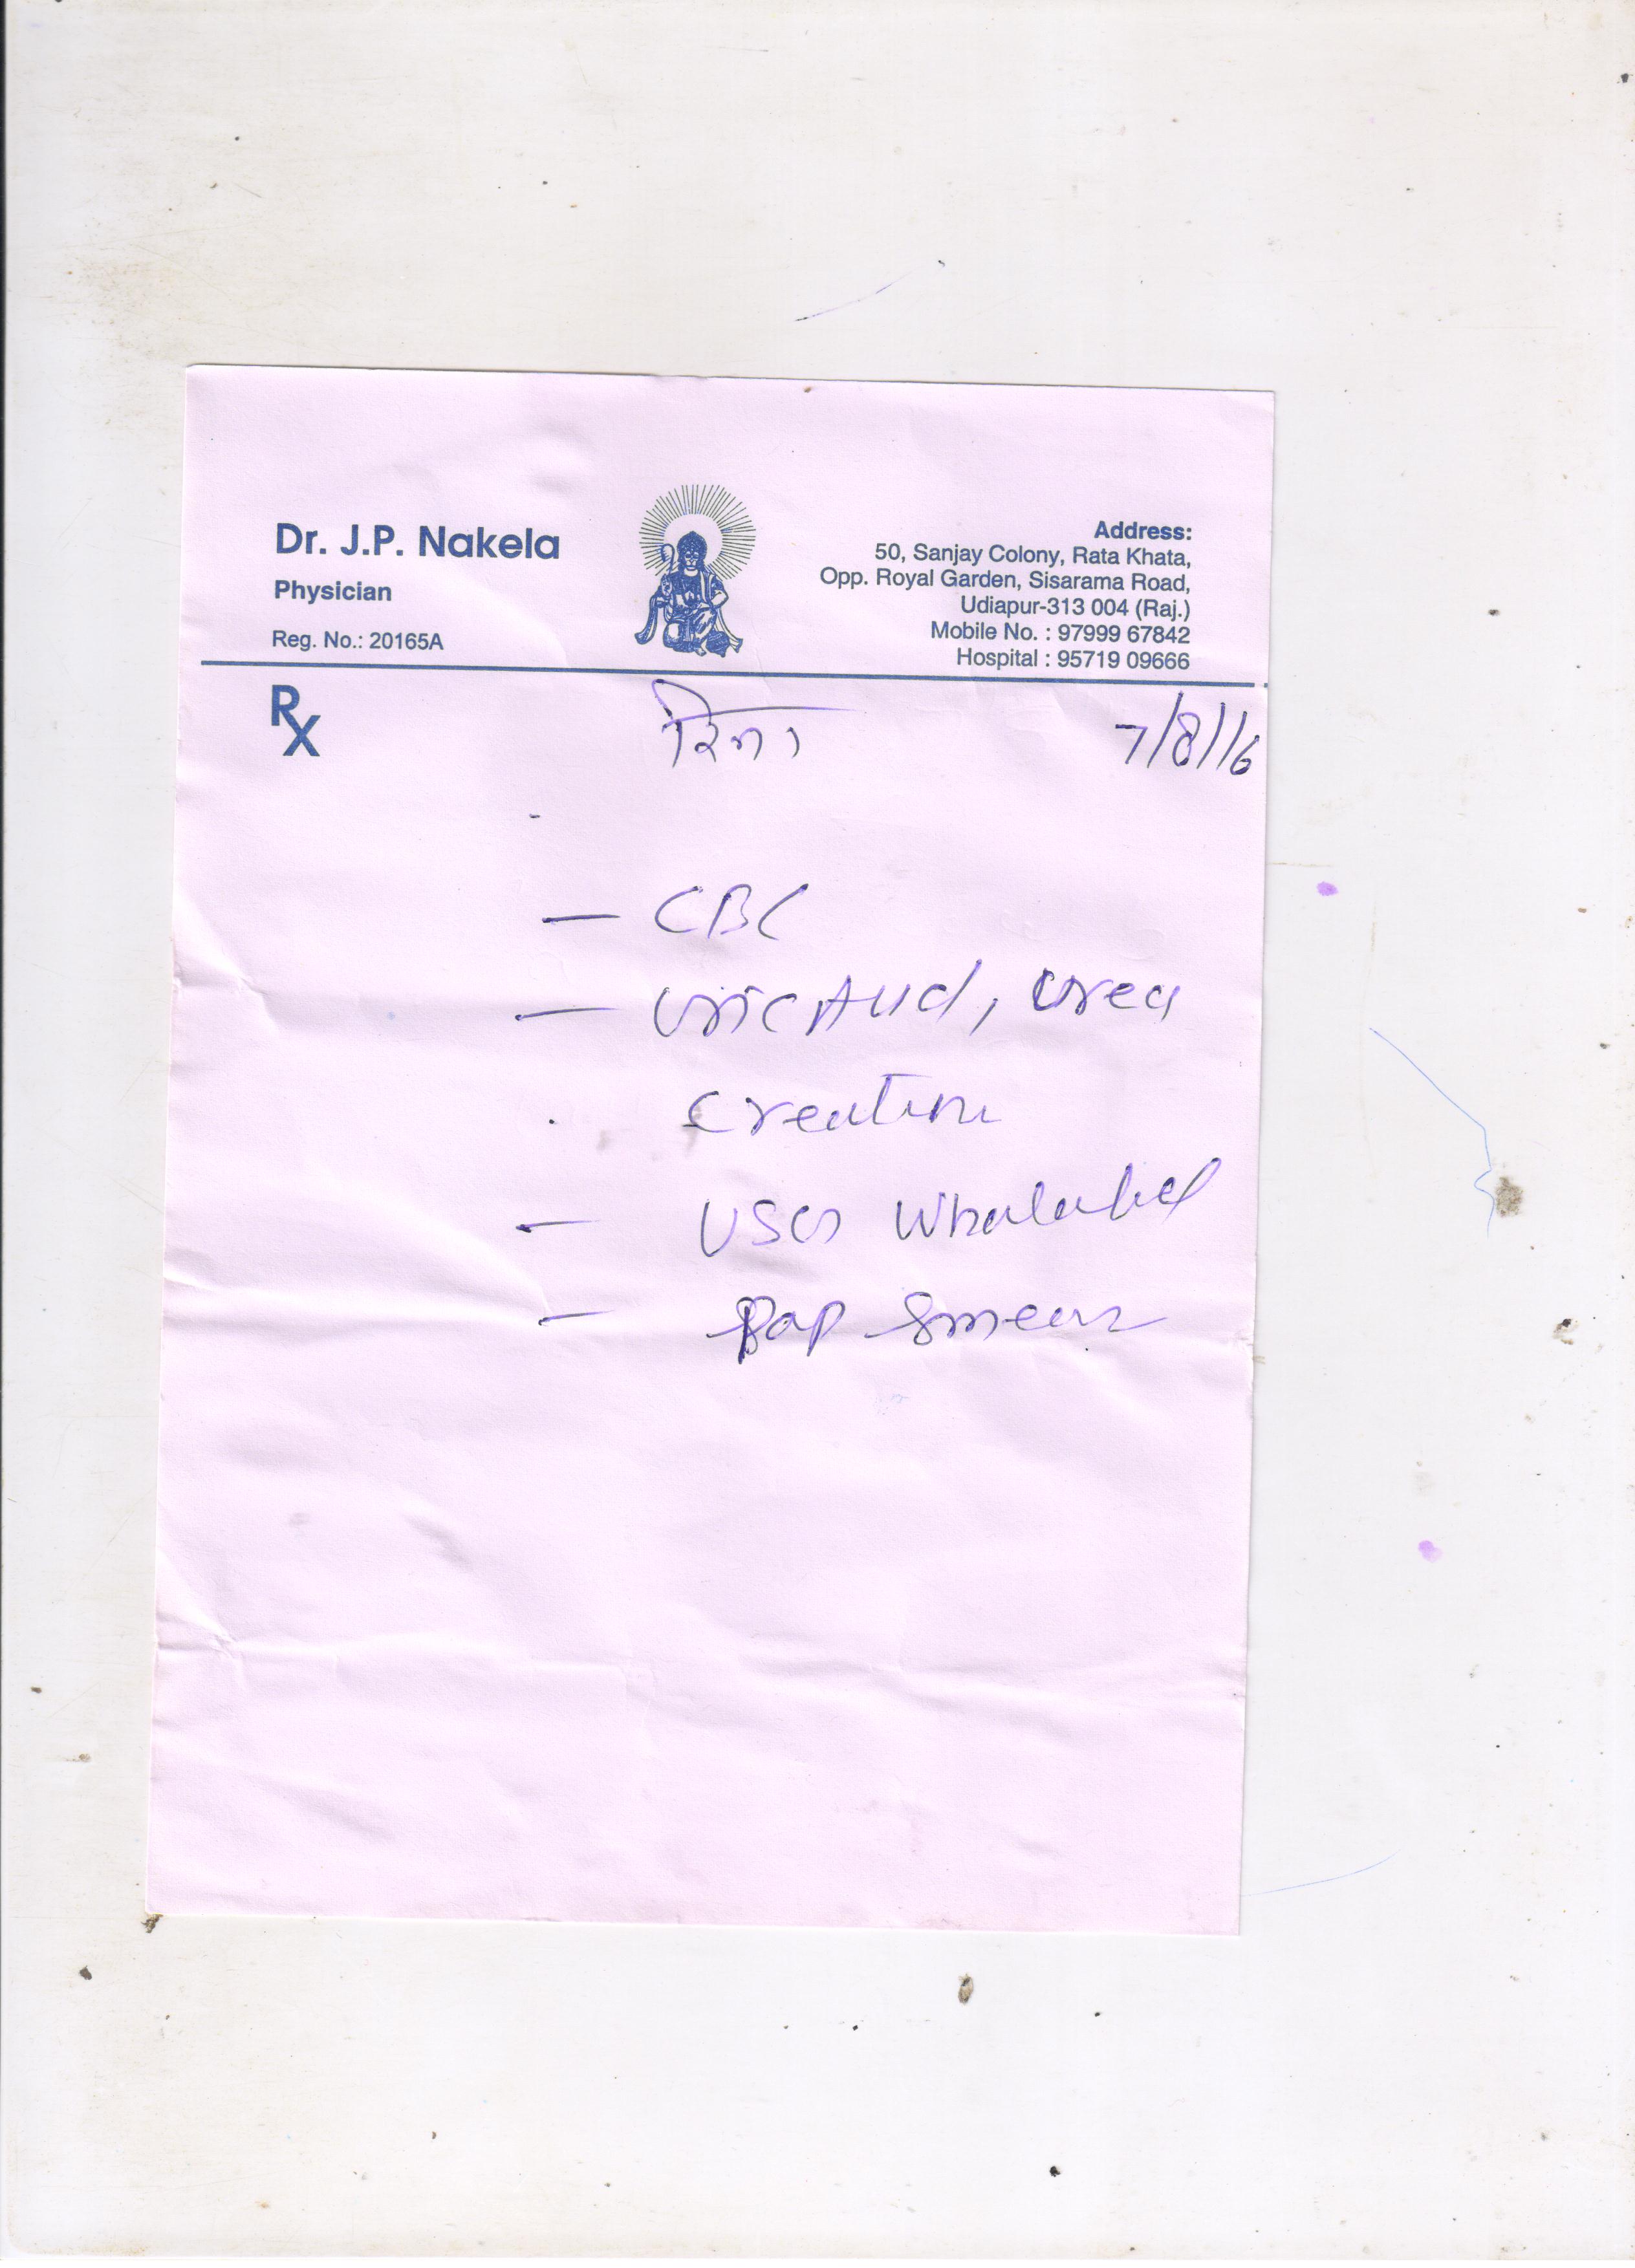 Dr. J.P. Nakela
Physician
Reg. No.: 20165A
Address:
50, Sanjay Colony, Rata Khata,
Opp. Royal Garden, Sisarama Road,
Udiapur-313 004 (Raj.)
Mobile No. : 97999 67842
Hospital : 95719 09666
Rx
रिना 7/8/16
— CBC
— Uric Acid, Urea
Creatinine
— USG Whole abd
— Pap Smear